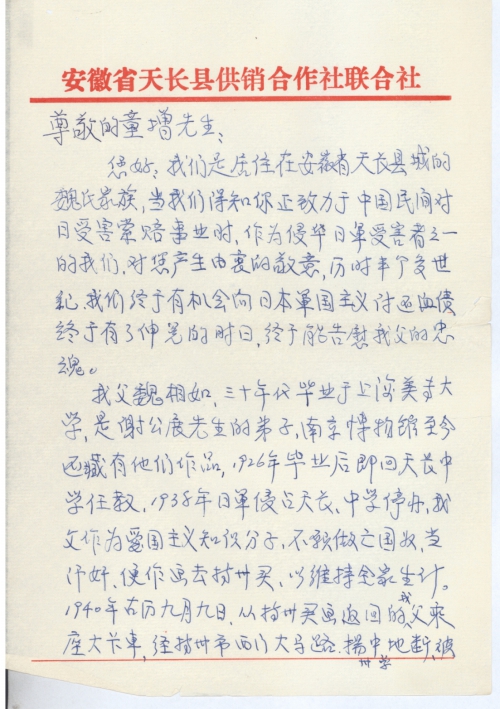 安徽省天长县供销合作社联合社
尊敬的童增先生:
您好,我们是居住在安徽省天长县城的
魏氏家族,当我们得知你正致力于中国民间对
日受害索赔事业时,作为侵华日军受害者之一
的我们,对您产生由衷的敬意,历时半个多世
纪,我们终于有机会向日本军国主义讨还血债
终于有了伸冤的时日,终于能告慰我父的忠
魂。
我父魏相如,三十年代毕业于上海美专大
学,是谢公展先生的弟子,南京博物馆至今
还藏有他们作品,1926年毕业后即回天长中
学任教,1938年日军侵占天长,中学停办,我
父作为爱国主义知识分子,不愿做亡国奴,当
汉奸,便作画去扬州买,以维持全家生计。
1940年古历九月九日,从扬州买画返回的我父乘
座大卡车,经扬州市西门大马路,扬州中学地段,被